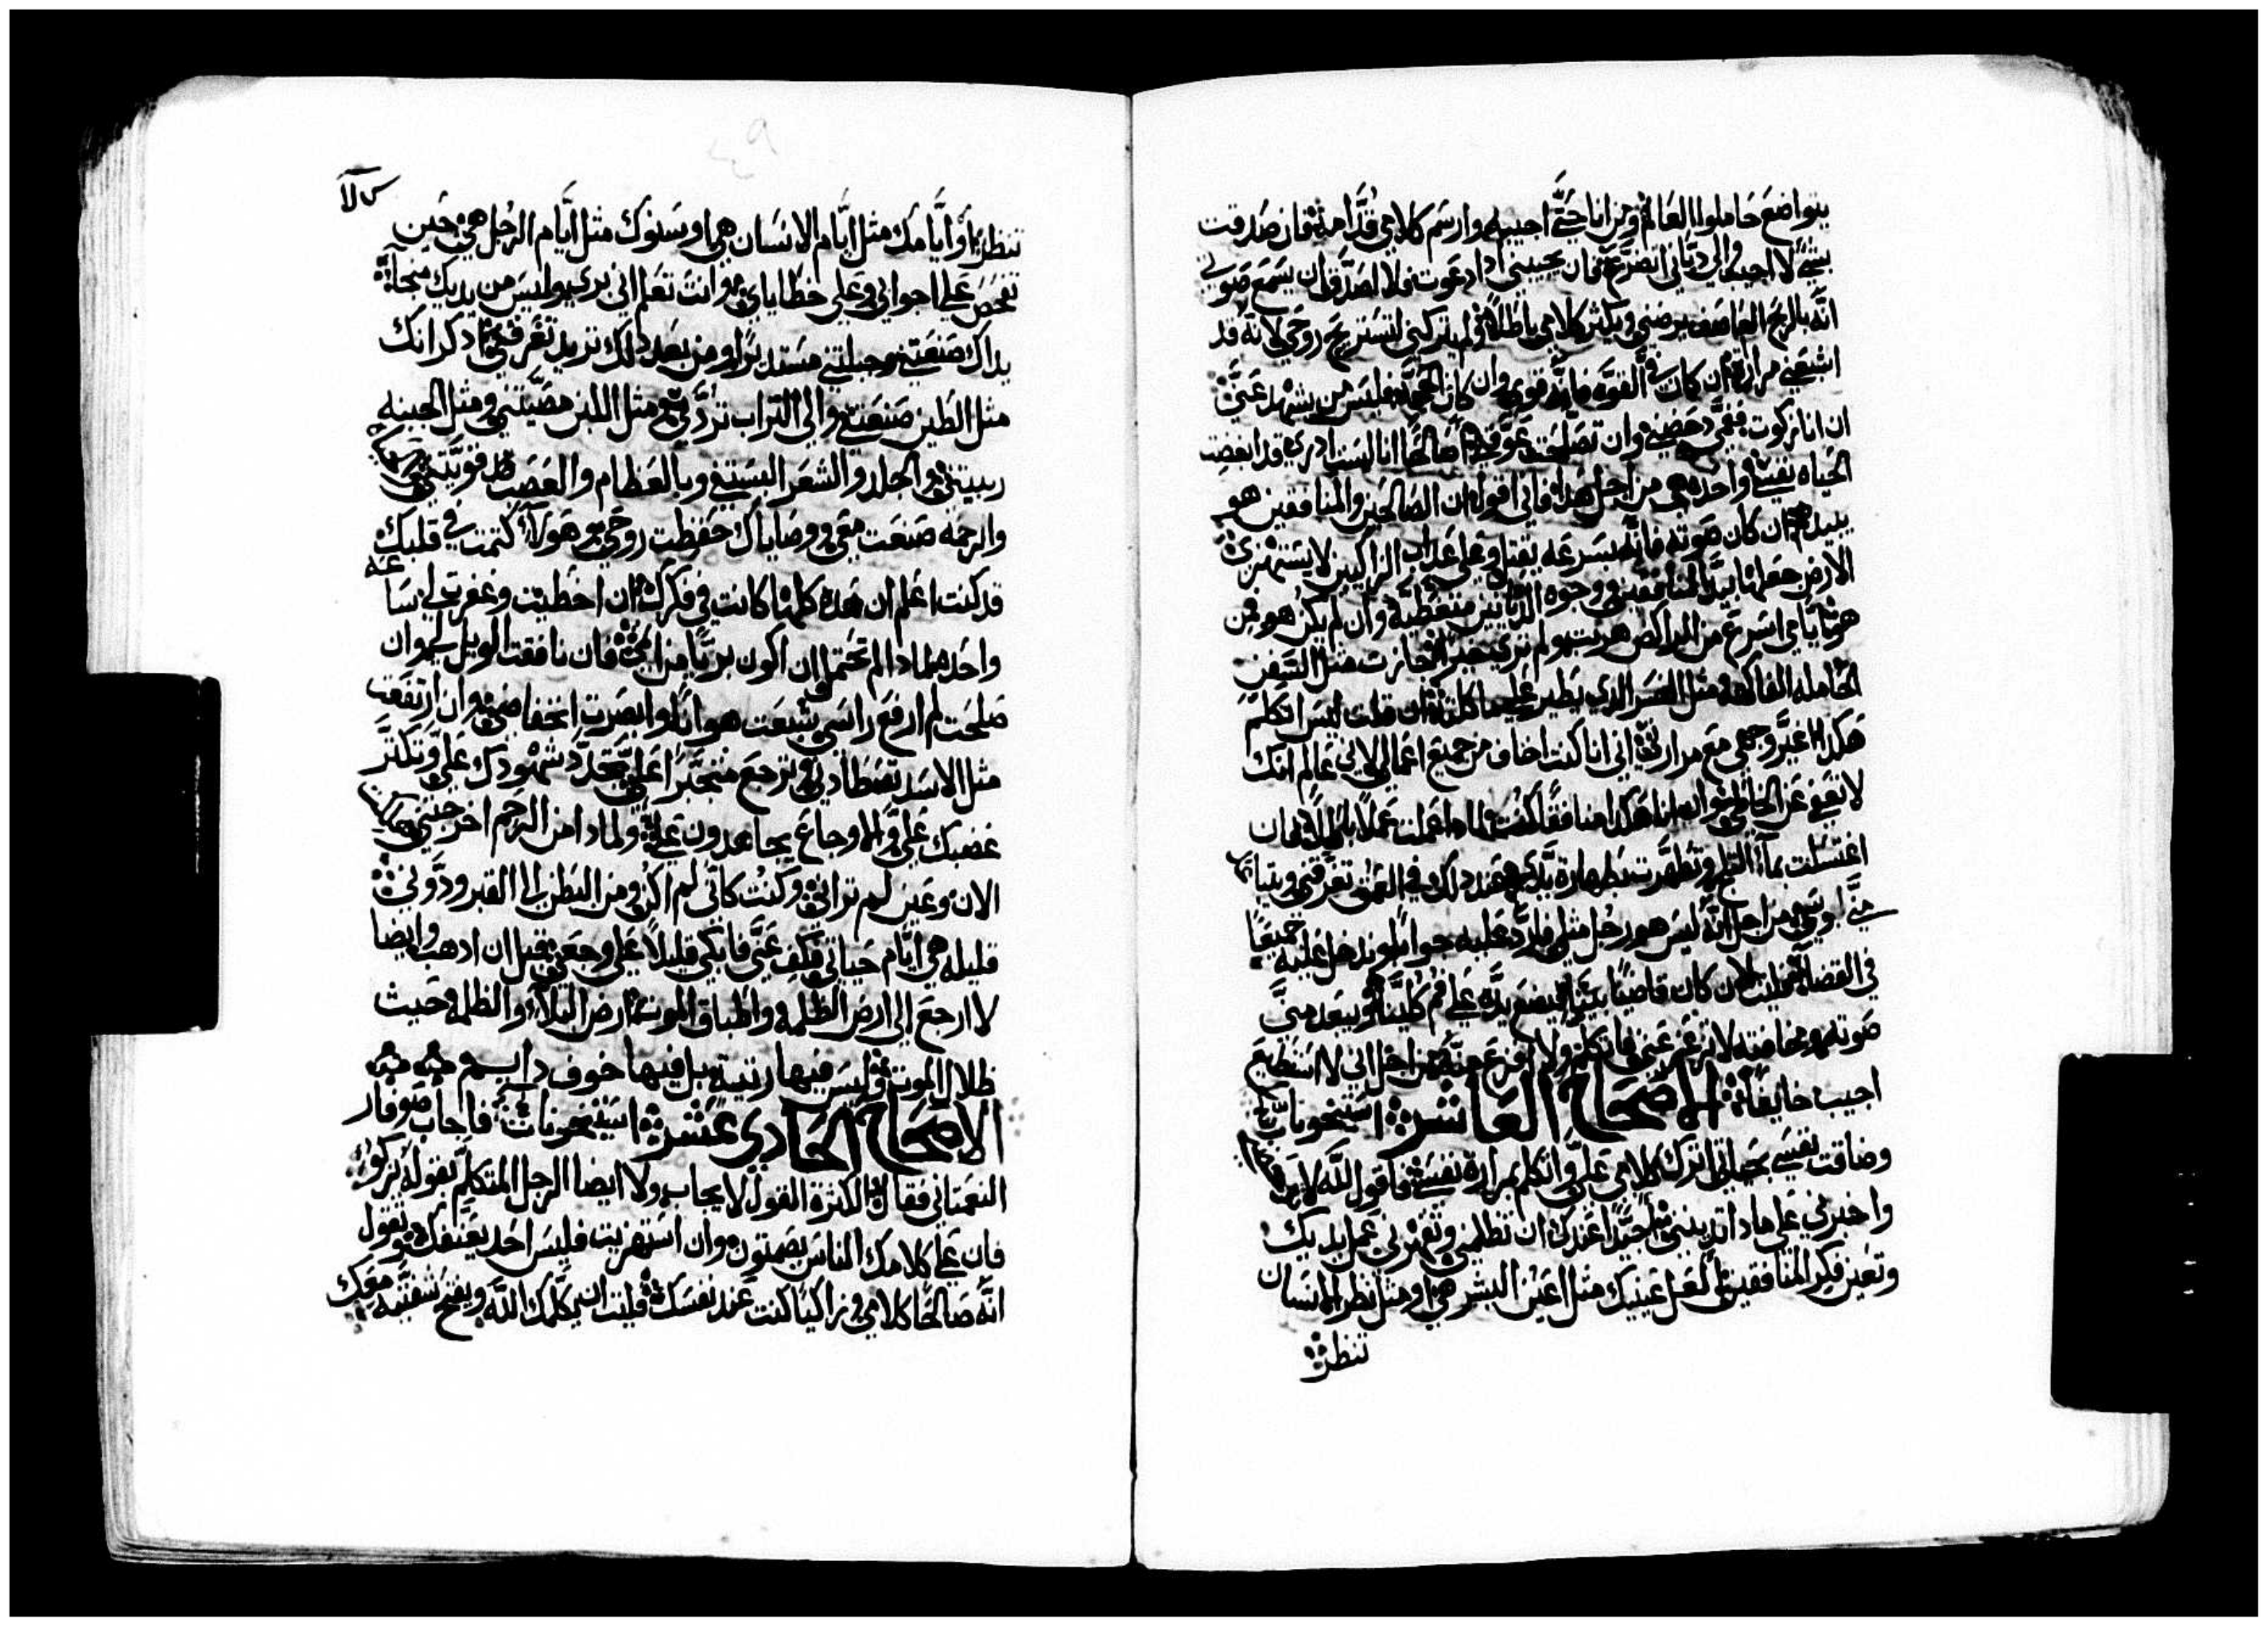 يتواضع حاملوا العالم ومن انا حتى اجيبه وارسم كلامي قدامه فان صدقت
بشي لا اجيب والى دياني اتضرع فان يجيبني ادا دعوت فلا اصدق ان يسمع صوتي
انه بالريح العاصف يرضني ويكثر كلامي باطلا ولم يتركني لتستريح روحي لانه قد
اشبعني مرارة ان كان في القوة فانه قوي وان كان الحكم فليس من يشهد عني
ان انا زكوت ففمي دحضني وان تصلحت عوقني صالحا انا لست ادري قد ابغضت
الحياه نفسي واحده هي من اجل هذا فاني اقول ان الصالحين والمنافقين هو
يبيدهم ان كان صوته فانه بسرعه يقتل وعلى عداب الزاكيين لا يستهزي
الارض جعلها بيد المنافقين ووجوه الديانين منغطية وان لم يكن هو فمن
هو ايامي اسرع من الراكض هربت ولم تري خيرا جازت مثل السفن
الحامله الفاكهه مثل النسر الدي يطير على ماكلته ان قلت ليس اتكلم
هكدا اغير وجهي مع مرارتي اني انا كنت اخاف من جميع اعمالي لاني عالم انك
لا تعفي عن الخاطي وان انا هكدا منافقا كنت لمادا عملت عملا باطلا فان
اغتسلت بماء الثلج وتطهرت بطهارة يدي فعند دلك في العمق تغرقني وثيابي
مني اوسي من اجل انه ليس هو رجل مثلي فارد عليه جوابا وندخل عليه جميعا
في القضاء فليت ان كان قاضيا بيننا فيضع يده على فم كلينا ويبعد مني
صوته ومخافته لا تزعجني فاتكلم ولا افزع منه من اجل اني لا استطيع
اجيب خايفا الاصحاح العاشر استيخونات
وضاقت نفسي بحياتي اترك كلامي علي واتكلم بمرارة نفسي فاقول لله لا
واخبرني على مادا تدينني اجيدا عندك ان تظلمني وتقهرني عمل يديك
وتعين فكر المنافقين لعل عينيك مثل اعين البشر هي او مثل نظر الانسان
تنظر
كلا
تنظر او ايامك مثل ايام الانسان هي او سنوك مثل ايام الرجل هي حين
تفحص على اجوابي وعلى خطاياي وانت تعلم اني بري وليس من يديك منجاة
يداك صنعتني وجبلتني مستديرا ومن بعد دلك تريد تغرقني ادكر انك
مثل الطين صنعتني والى التراب تردني ومثل اللبن مصيتني ومثل الجبنه
ربيتني والجلد والشعر البستني وبالعظام والعصب قد قويتني
والرحمه صنعت معي ووصاياك حفظت روحي وهولاء كتمت في قلبك
قد كنت اعلم ان هذه كلها كانت في فكرك ان اخطيت وغفرت لي ساعه
واحده لمادا لم تحتمل ان اكون بريا من اثمي فان نافقت الويل لي وان
صلحت لم ارفع راسي شبعت هوانا وابصرت انخفاضي وان ارتفعت
مثل الاسد تصطادني وترجع متجبرا علي تجدد شهودك علي وتكثر
غضبك علي والاوجاع يجاهدون علي ولمادا من الرحم اخرجتني
الان وعين لم تراني وكنت كاني لم اكن ومن البطن الى القبر ودوني
قليله هي ايام حياتي فكف عني فابكي قليلا على وجعي قبل ان ادهب وايضا
لا ارجع الى ارض الظلمه واطباق الموت ارض البلاء والظلمه حيث
ظلال الموت وليس فيها رتبة بل فيها خوف دايم
الاصحاح الحادى عشر استيخونات فاجاب صوفار
النعمتاني فقال لكثرة القول لا يجاب ولا ايضا الرجل المتكلم بقوله يزكو
فان على كلامك الناس يصمتون وان استهزيت فليس احد يعنفك وتقول
انه صالحا كلامي وزاكيا كنت عند نفسك فليت ان يكلمك الله ويفتح شفتيه معك